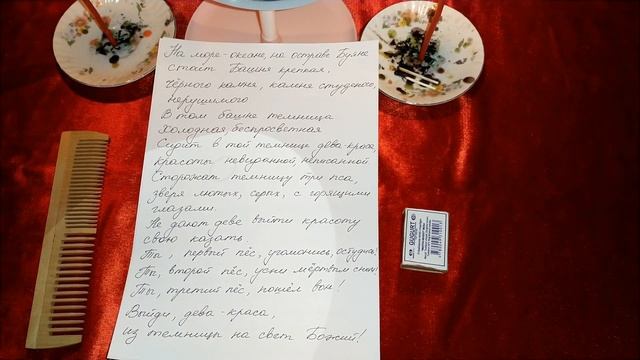 На море-океане, на острове Буяне
стоит Башня крепкая,
Чёрного камня, камня студёного,
нерушимого
В том башне темница
Холодная, беспросветная
Сидит в той темнице дева-краса,
красоты невиданной, неписанной
Сторожат темницу три пса,
зверя лютых, серых, с горящими
глазами.
Не дают деве выйти красоту
свою казать.
Ты, первый пёс, угомонись, остудись!
Ты, второй пёс, усни мёртвым сном!
Ты, третий пёс, пошёл вон!
Выйди, дева-краса,
из темницы на свет Божий!